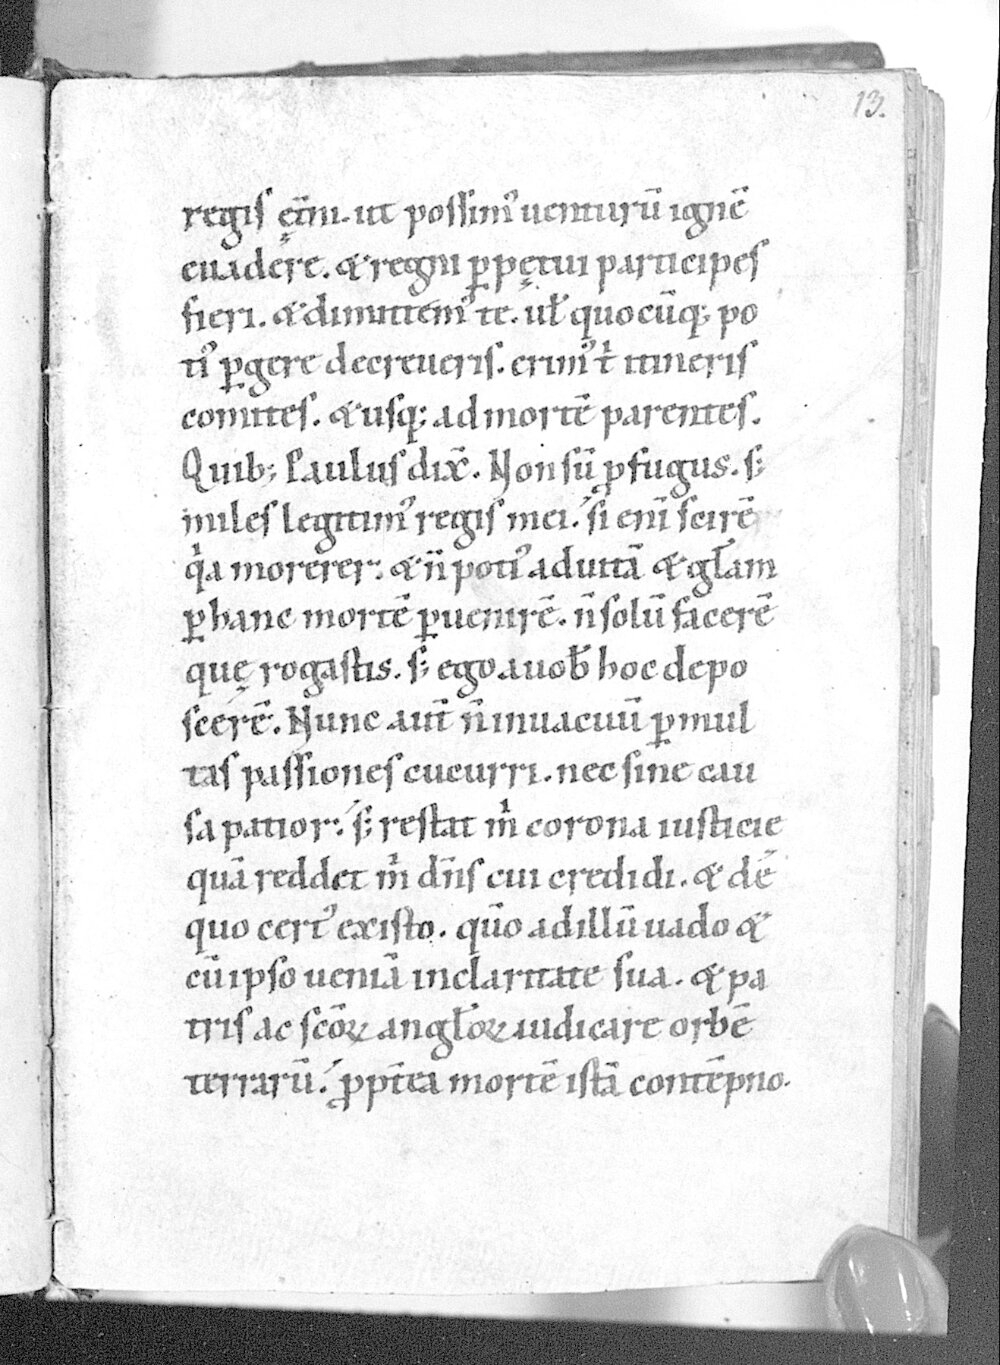 13.
regis ęt̄ni. ut possim᷒ venturū ignē
euadere. & regni ꝑpętui participes
fieri. & dimittem᷒ te. uł quocūq; po
ti᷒ ꝑgere decreueris. erim᷒ t̍ itineris
comites. & usq; ad mortē parentes.
Quib; Paulus dix̄. Non sū ꝓfugus. s;
miles legitim᷒ regis mei. si enī scirē
q̍a morerer. & n̄ poti᷒ ad uitā & gl̄am
ꝑ hanc mortē ꝑuenirē. n̄ solū facerē
quę rogastis. s; ego a uob̄ hoc depo
scerē. Nunc aut̄ n̄ inuacuū ꝑ mul
tas passiones cucurri. nec sine cau
sa patior. s; restat m̍ corona iusticie
quā reddet m̍ dn̄s cui credidi. & dē
quo cert᷒ existo. qūo ad illū uado &
cū ipso ueniā in claritate sua. & pa
tris ac scōꝝ angl̄oꝝ iudicare orbē
terrarū. ꝓpt̄ea mortē istā contēpno.